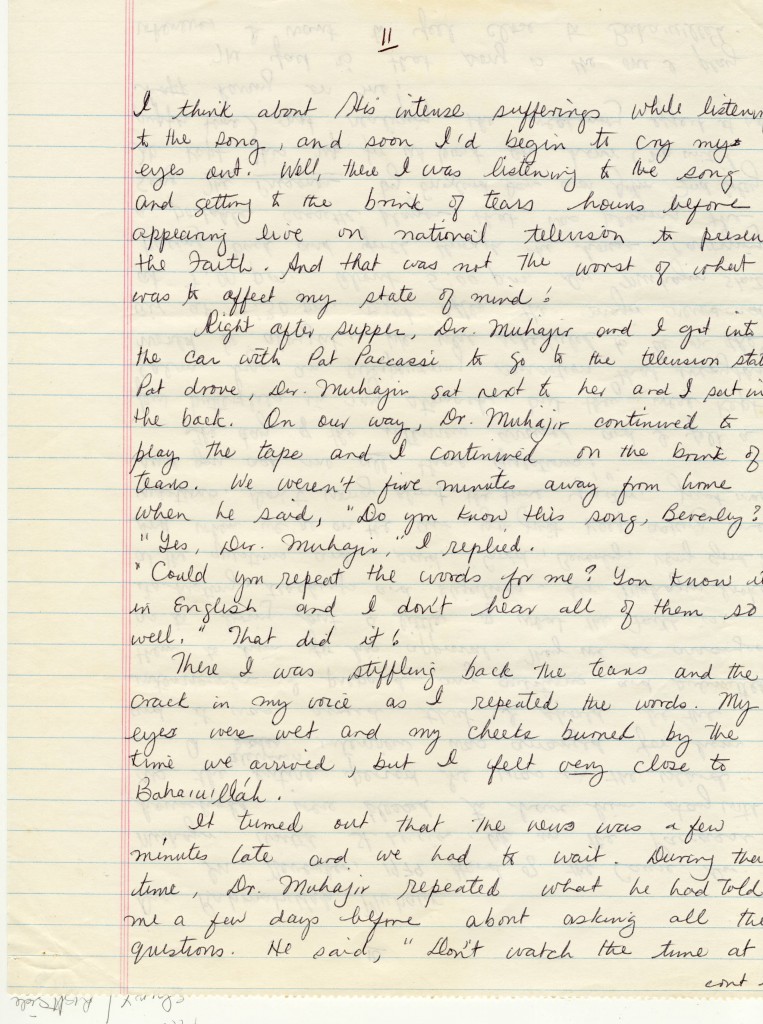 11
I think about His intense sufferings while listenin
to the song, and soon I'd begin to cry my
eyes out. Well, there I was listening to the song
and getting to the brink of tears hours before
appearing live on national television to presen
the Faith. And that was not the worst of what
was to affect my state of mind!
Right after supper, Dr. Muhajir and I got into
the car with Pat Paccassi to go to the television stat
Pat drove, Dr. Muhajir sat next to her and I sat in
the back. On our way, Dr. Muhajir continued to
play the tape and I continued on the brink of
tears. We weren't five minutes away from home
when he said, "Do you know this song, Beverly?
"Yes, Dr. Muhajir," I replied.
"Could you repeat the words for me? You know it
in English and I don't hear all of them so
well." That did it!
There I was stiffling back the tears and the
crack in my voice as I repeated the words. My
eyes were wet and my cheeks burned by the
time we arrived, but I felt very close to
Baha'u'lláh.
It turned out that the news was a few
minutes late and we had to wait. During the
time, Dr. Muhajir repeated what he had told
me a few days before about asking all the
questions. He said, "Don't watch the time at
cont